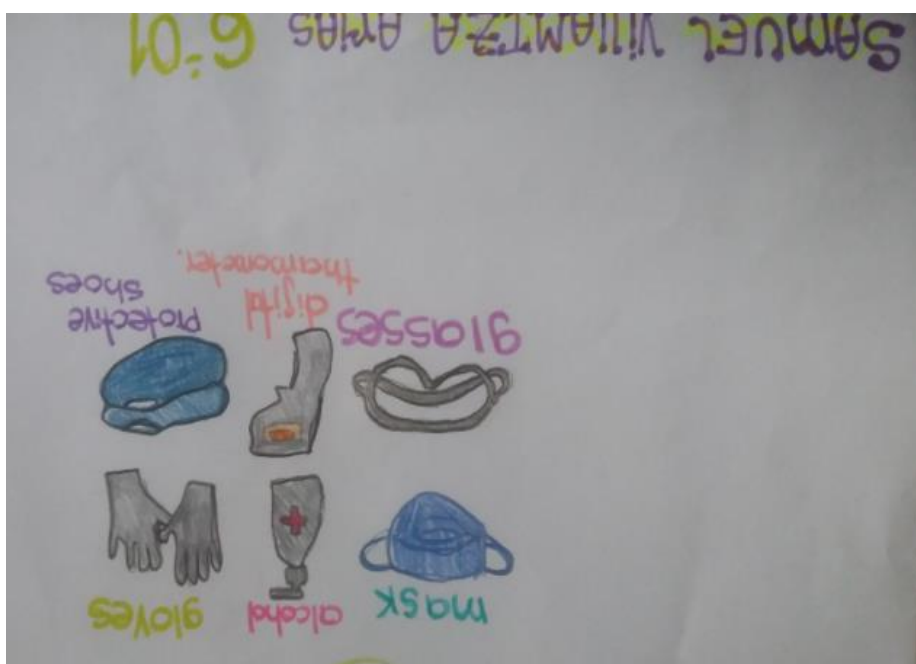 mask alcohol gloves
glasses digital thermometer. Protective shoes
SAMUEL VillAMIZA ArIAS 6-01